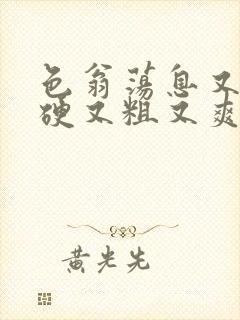 色翁荡息又
硬又粗又爽
黄光先